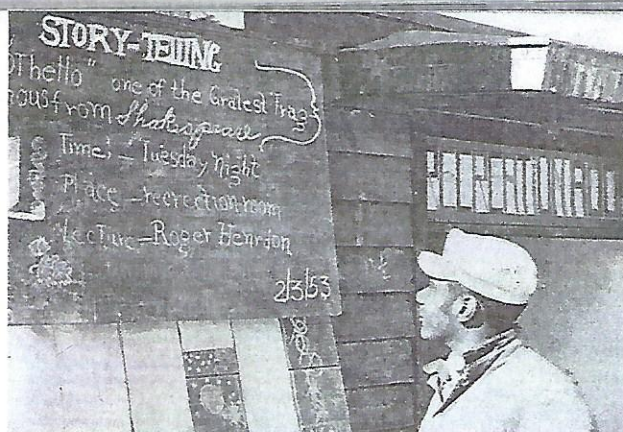 STORY-TELLING
OThello" one of the Gratest Trag
ous from Shakespeare
Time:- Tuesday night
Place - recrection room
Lecture - Roger Henrdon
2/3/53